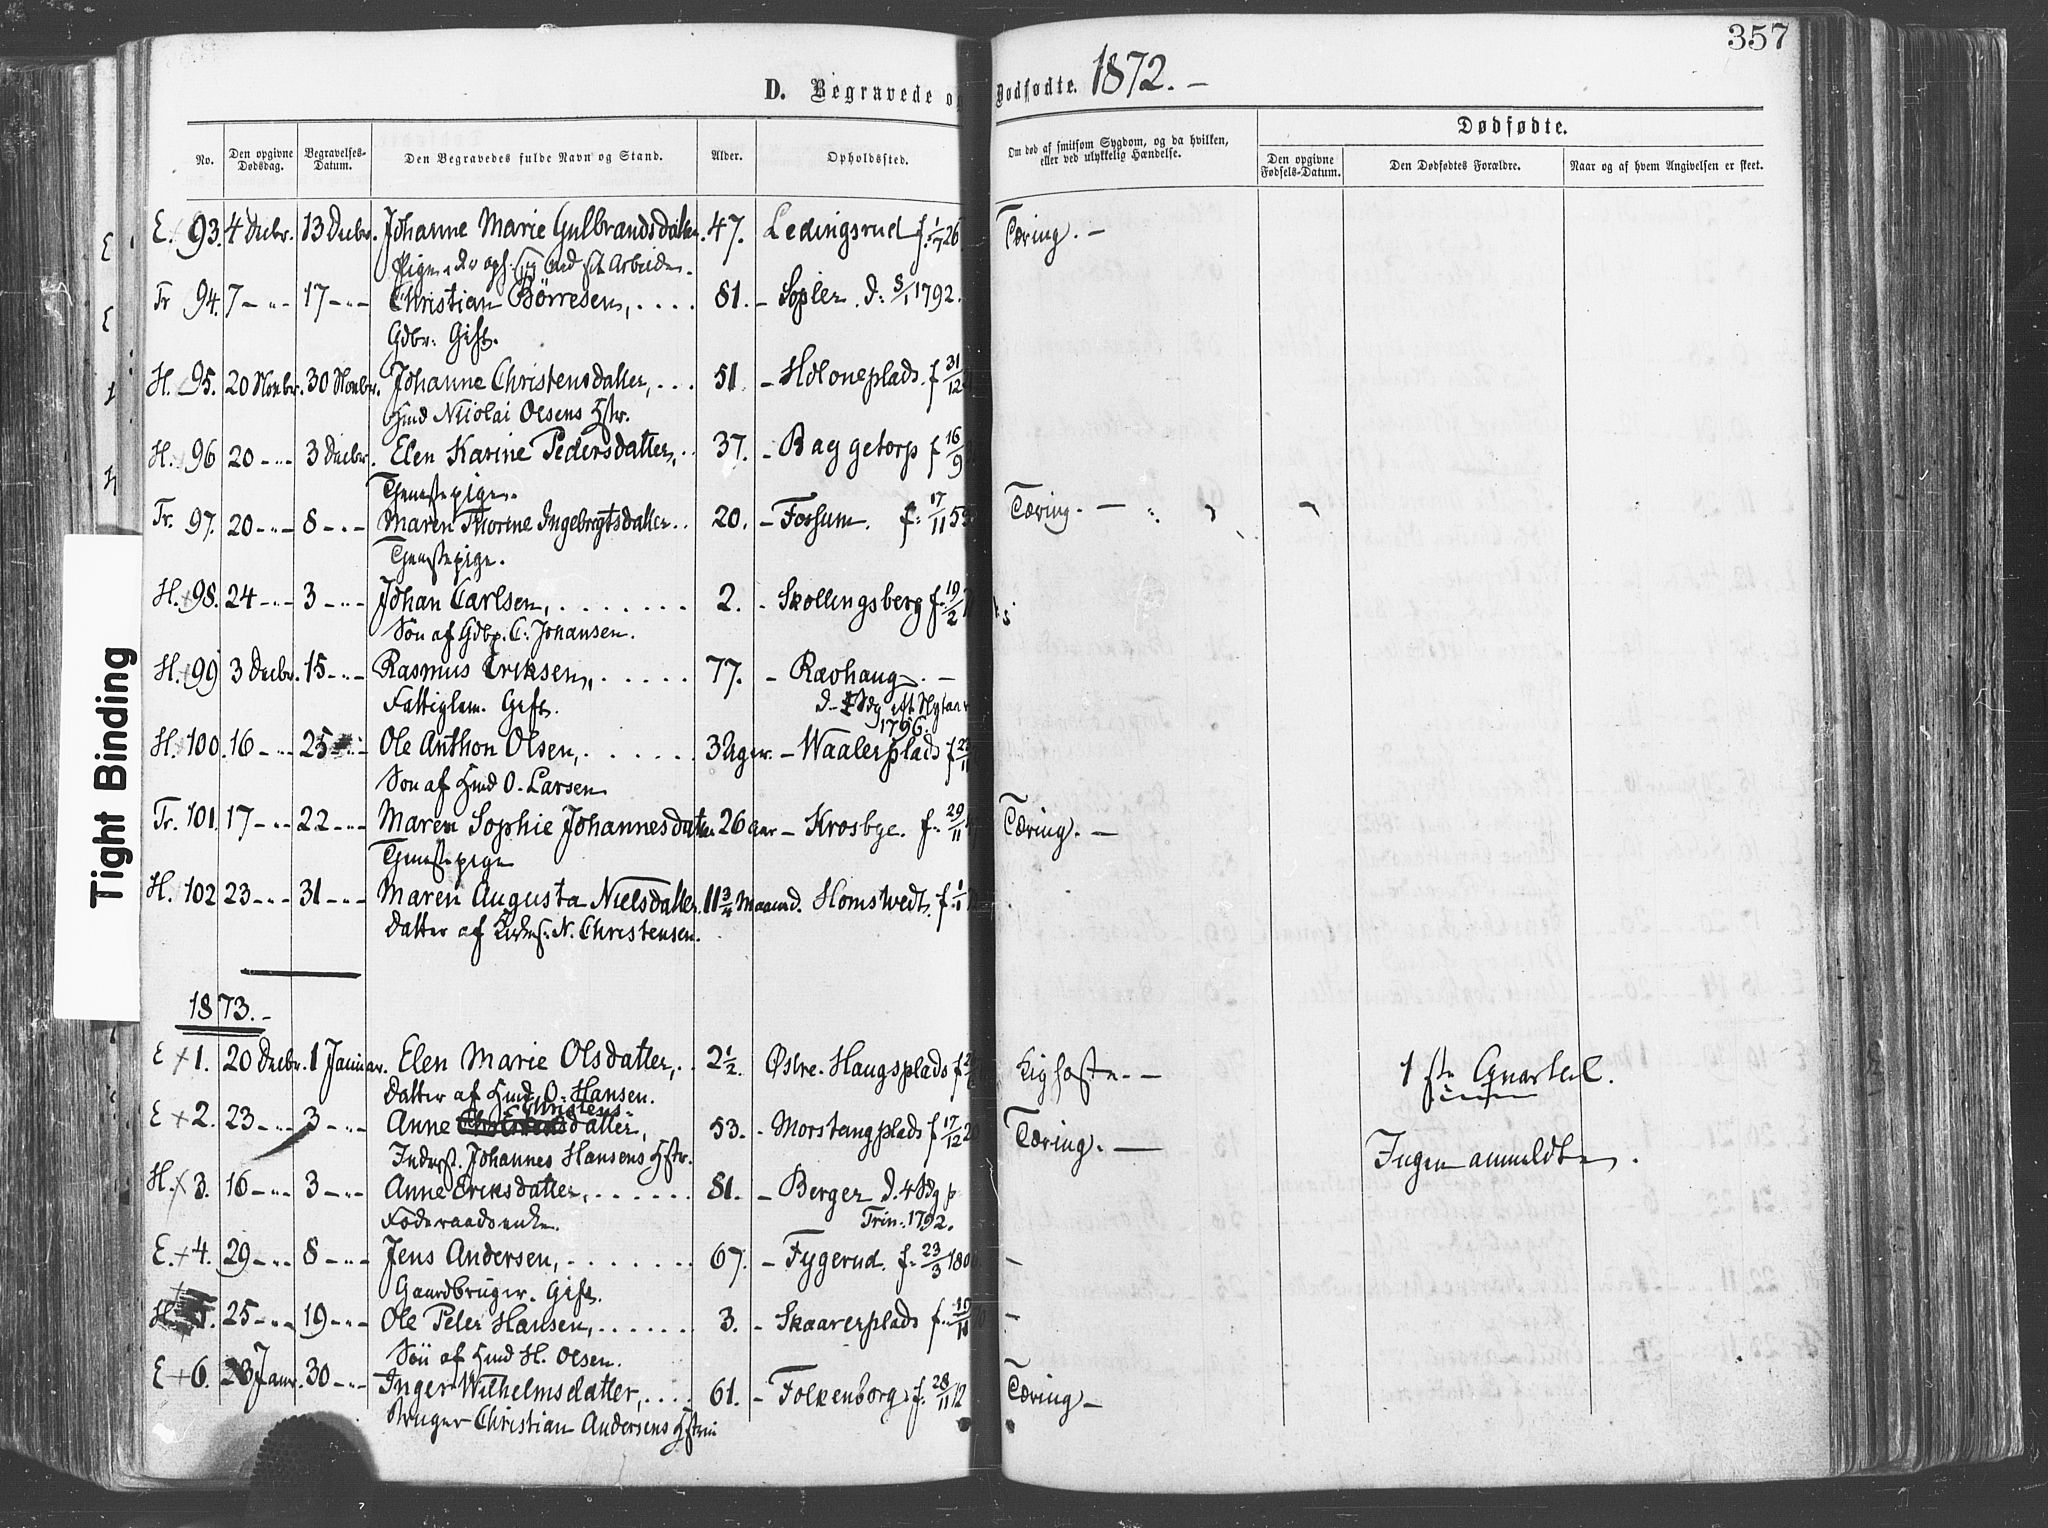 357
D. Begravede og Dødfødte. 1872. –
Dødfødte.
No. Den opgivne Dødsdag. Begravelses-Datum. Den Begravedes fulde Navn og Stand. Alder. Opholdssted. Om død af smitsom Sygdom, og da hvilken, eller ved ulykkelig Hændelse. Den opgivne Fødsels-Datum. Den Dødfødtes Forældre. Naar og af hvem Angivelsen er skeet.
Tight Binding
E. 93. 4 Decbr. 13 Decbr. Johanne Marie Gulbrandsdatter. 47. Ledingsrud f. 1/7 26 Tæring. –
Pige
Tr 94. 7 – „ – 17 – „ – Christian Børresen, .... 81. – Sopler d: 8/1 1792.
Gdbr. Gift.
H. 95. 20 Novbr. 30 Novbr. Johanne Christensdatter, ... 51. – Holoneplads. f 31/12
Hmd Nicolai Olsens Hstr.
H. 96 20 – „ – 3 Decbr. Elen Karine Pedersdatter, .. 37. – Baggetorp f 16/9
Tjenestepige.
Tr. 97. 20 – „ – 8 – „ – Maren Thorine Ingebrigtsdatter .. 20. – Fossum. f: 17/11 53 Tæring. –
Tjenestepige.
H. 98. 24 – „ – 3 – „ – Johan Carlsen, ....... 2. – Skollingsberg f. 19/2
Søn af Gdbr. C. Johansen.
H. 99 3 Decbr. 15 – „ – Rasmus Eriksen, ..... 77. – Rævhaug. –
Fattiglem. Gift. d. Sdg eft Nytaar
1796.
H. 100. 16 – „ – 25 – „ – Ole Anthon Olsen, ...... 3 Uger. – Waalerplads f 23/11
Søn af Hmd O. Larsen
Tr. 101. 17 – „ – 22 – „ – Maren Sophie Johannesdatter 26 aar – Krosbye. f. 29/11 Tæring. –
Tjenestepige
H. 102 23 – „ – 31 – „ – Maren Augusta Nielsdatter. 11 3/4 Maaned. Homstvedt. f. 1/1
Datter af N. Christensen.
1873. –
E + 1. 20 Decbr. 1 Januar. Elen Marie Olsdatter, .. 2 1/2. Østre. Haugsplads f Kighoste. – 1ste Quartal.
Datter af Hmd O. Hansen.
E + 2. 23 – „ – 3 – „ – Anne Christensdatter, 53. – Morstangplads f 17/12 Tæring. – Ingen anmeldte.
Inderst. Johannes Hansens Hstr.
H. + 3. 16 – „ – 3 – „ – Anne Eriksdatter, ...... 81. – Berger d. 4 Sdg p
Føderaadsenke. Trin. 1792.
E. + 4. 29 – „ – 8 – „ – Jens Andersen, ....... 67. – Fygerud. f. 23/3 180 –
Gaardbruger. Gift.
H. 5. 25 – „ – 19 – „ – Ole Peter Hansen, ...... 3. – Skaarerplads f. –
Søn af Hmd H. Olsen.
E + 6. 23 Janr. 30 – „ – Inger Wilhelmsdatter, .... 61. – Folkenborg f. 28/11 12 Tæring –
Bruger Christian Andersens Hstru